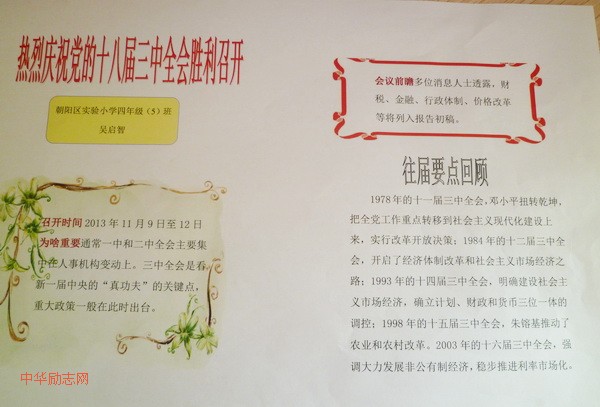 热烈庆祝党的十八届三中全会胜利召开
朝阳区实验小学四年级（5）班
吴启智
召开时间 2013 年 11 月 9 日至 12 日
为啥重要通常一中和二中全会主要集
中在人事机构变动上。三中全会是看
新一届中央的“真功夫”的关键点，
重大政策一般在此时出台。
中华励志网
会议前瞻多位消息人士透露，财
税、金融、行政体制、价格改革
等将列入报告初稿。
往届要点回顾
1978 年的十一届三中全会，邓小平扭转乾坤，
把全党工作重点转移到社会主义现代化建设上
来，实行改革开放决策；1984 年的十二届三中全
会，开启了经济体制改革和社会主义市场经济之
路；1993 年的十四届三中全会，明确建设社会主
义市场经济，确立计划、财政和货币三位一体的
调控；1998 年的十五届三中全会，朱熔基推动了
农业和农村改革。2003 年的十六届三中全会，强
调大力发展非公有制经济，稳步推进利率市场化。